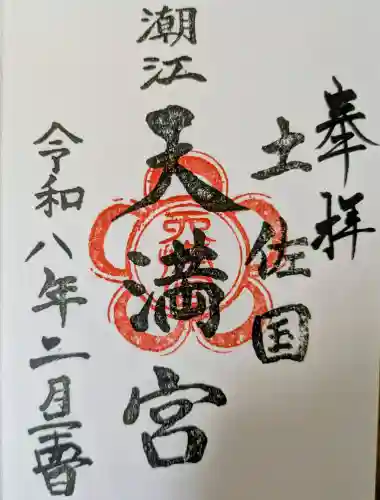 奉拝
土佐国
潮江
天満宮
令和八年二月